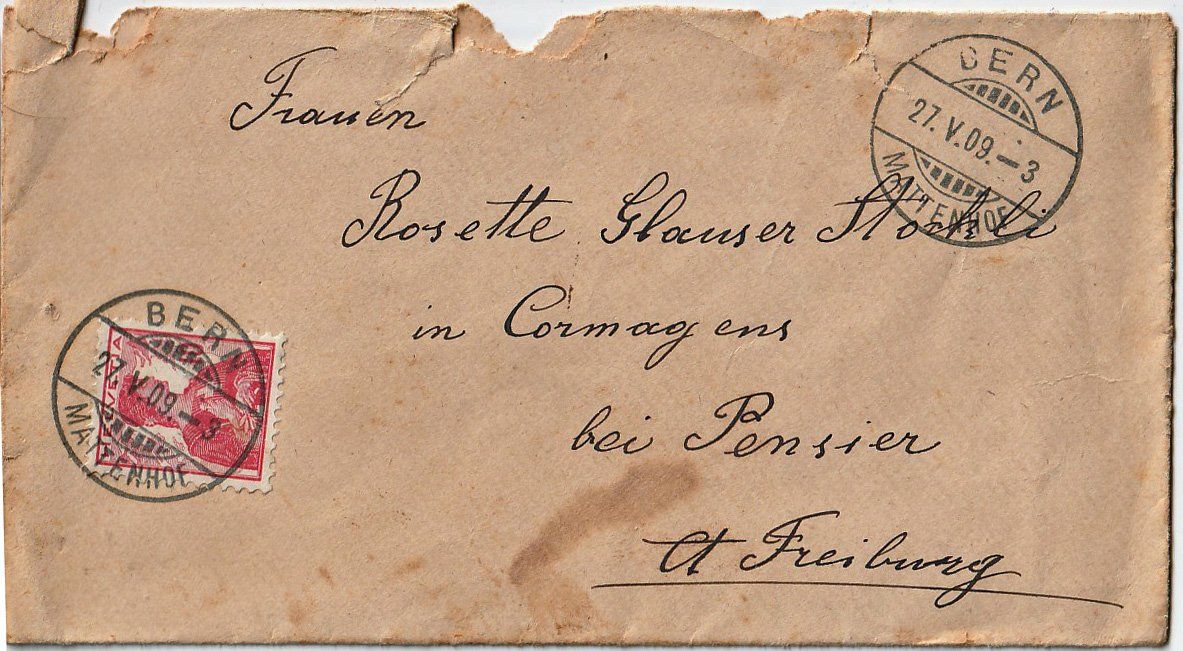 Frauen
Rosette Glauser Stöckli
in Cormagens
bei Pensier
Ct Freiburg
BERN
27. V. 09. — 3
MATTENHOF
BERN
27. V. 09. — 3
MATTENHOF
HELVETIA